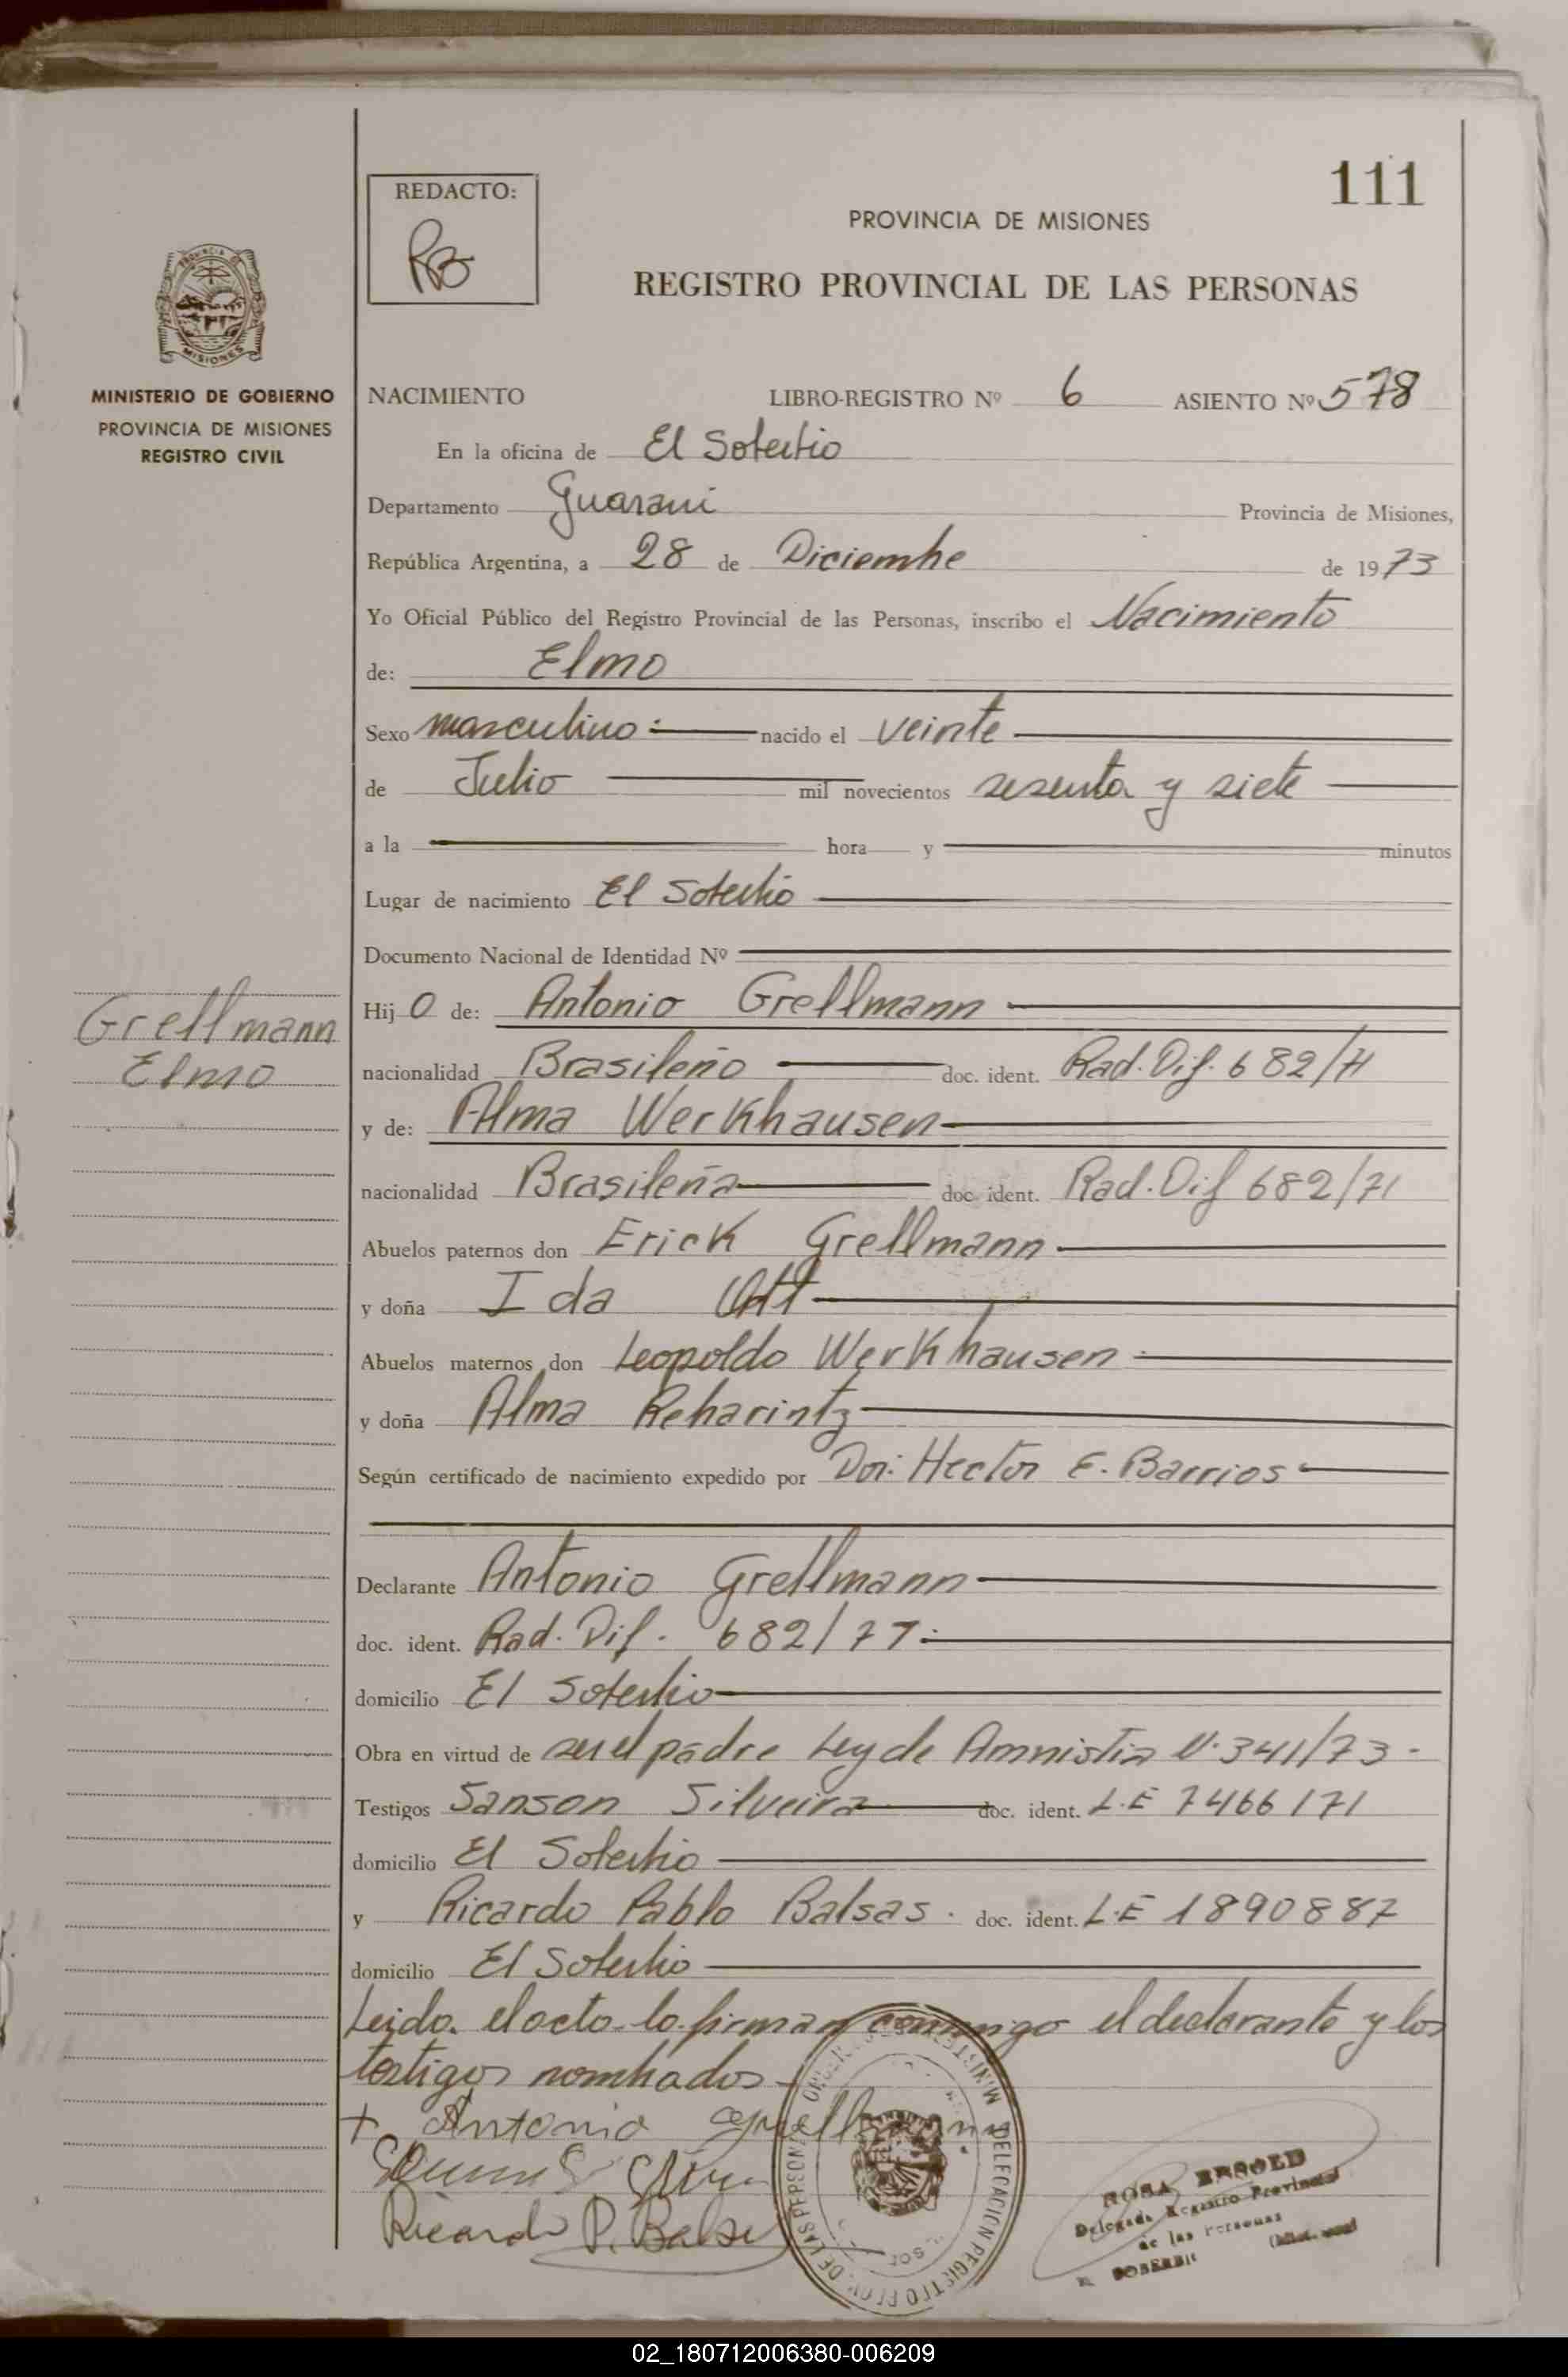 111
REDACTO:
RB
PROVINCIA DE MISIONES
REGISTRO PROVINCIAL DE LAS PERSONAS
MISIONES
MINISTERIO DE GOBIERNO
PROVINCIA DE MISIONES
REGISTRO CIVIL
NACIMIENTO LIBRO-REGISTRO Nº 6 ASIENTO Nº 578
En la oficina de El Soberbio
Departamento Guarani Provincia de Misiones,
República Argentina, a 28 de Diciembre de 1973
Yo Oficial Público del Registro Provincial de las Personas, inscribo el Nacimiento
de: Elmo
Sexo masculino nacido el veinte
de Julio mil novecientos sesenta y siete
a la hora y minutos
Lugar de nacimiento El Soberbio
Documento Nacional de Identidad Nº
Grellmann
Elmo
Hij o de: Antonio Grellmann
nacionalidad Brasileño doc. ident. Rad. Dif. 682/71
y de: Alma Werkhausen
nacionalidad Brasileña doc. ident. Rad. Dif 682/71
Abuelos paternos don Erick Grellmann
y doña Ida Ott
Abuelos maternos don Leopoldo Werkhausen
y doña Alma Reharintz
Según certificado de nacimiento expedido por Dor: Hector E. Barrios
Declarante Antonio Grellmann
doc. ident. Rad. Dif. 682/71
domicilio El Soberbio
Obra en virtud de ser el padre Ley de Amnistia N. 341/73-
Testigos Sanson Silveira doc. ident. L.E 7466171
domicilio El Soberbio
y Ricardo Pablo Balsas. doc. ident. L.E 1890887
domicilio El Soberbio
Leido el acto lo firman conmigo el declarante y los
testigos nombrados-
+ Antonio Grellmann
Ricardo P. Balsa
DELEGACION REGISTRO PROV. DE LAS PERSONAS
ROSA
Delegada Registro Provincial
de las Personas
02_180712006380-006209